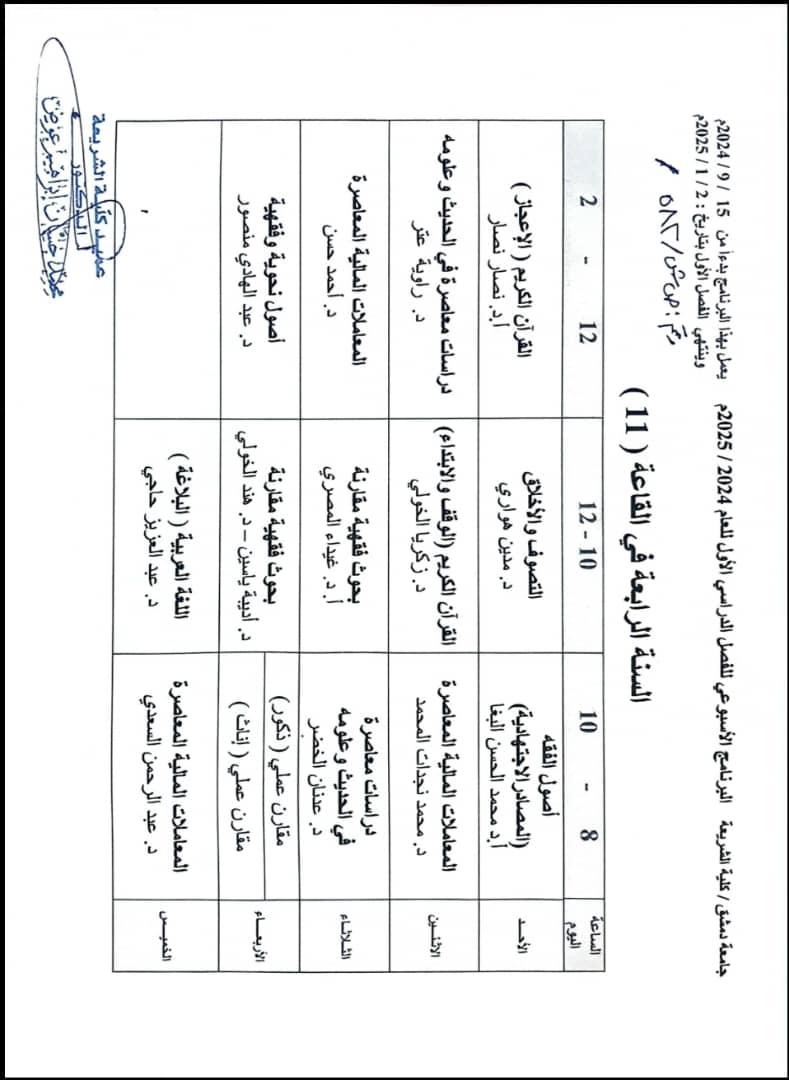 جامعة دمشق / كلية الشريعة    البرنامج الأسبوعي للفصل الدراسي الأول للعام 2024 / 2025م    يعمل بهذا البرنامج بدءاً من 15 / 9 / 2024م
وينتهي الفصل الأول بتاريخ : 2 / 1 / 2025م
السنة الرابعة في القاعة ( 11 )
الساعة
اليوم
8 - 10
10 - 12
12 - 2
الأحـد
أصول الفقه
(المصادر الاجتهادية)
أ.د محمد الحسن البغا
التصوف والأخلاق
د. مدين هواري
القرآن الكريم ( الإعجاز )
أ.د. نصار نصار
الاثنـين
المعاملات المالية المعاصرة
د. محمد نجدات المحمد
القرآن الكريم (الوقف والابتداء)
د. زكريا الخولي
دراسات معاصرة في الحديث وعلومه
د. راوية عتر
الثـلاثـاء
دراسات معاصرة
في الحديث وعلومه
د. عدنان الخضر
بحوث فقهية مقارنة
أ. د. غيداء المصري
المعاملات المالية المعاصرة
د. أحمد حسن
الأربعـاء
مقارن عملي ( ذكور)
مقارن عملي ( إناث )
بحوث فقهية مقارنة
د. أديبة ياسين – د. هند الخولي
أصول نحوية وفقهية
د. عبد الهادي منصور
الخميـس
المعاملات المالية المعاصرة
د. عبد الرحمن السعدي
اللغة العربية ( البلاغة )
د. عبد العزيز حاجي
عميد كلية الشريعة
الدكتور